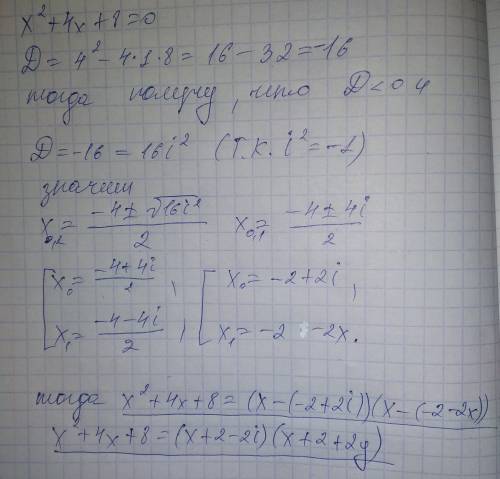 x² + 4x + 8 = 0
D = 4² - 4·1·8 = 16 - 32 = -16
тогда получу, что D < 0 и
D = -16 = 16i² (т.к. i² = -1)
значит
x₀,₁ = (-4 ± √(16i²))/2   x₀,₁ = (-4 ± 4i)/2
[ x₀ = (-4 + 4i)/2 ,   [ x₀ = -2 + 2i ,
x₁ = (-4 - 4i)/2 ,   x₁ = -2 -2x.
тогда x² + 4x + 8 = (x - (-2 + 2i))(x - (-2 - 2x))
x² + 4x + 8 = (x + 2 - 2i)(x + 2 + 2y)